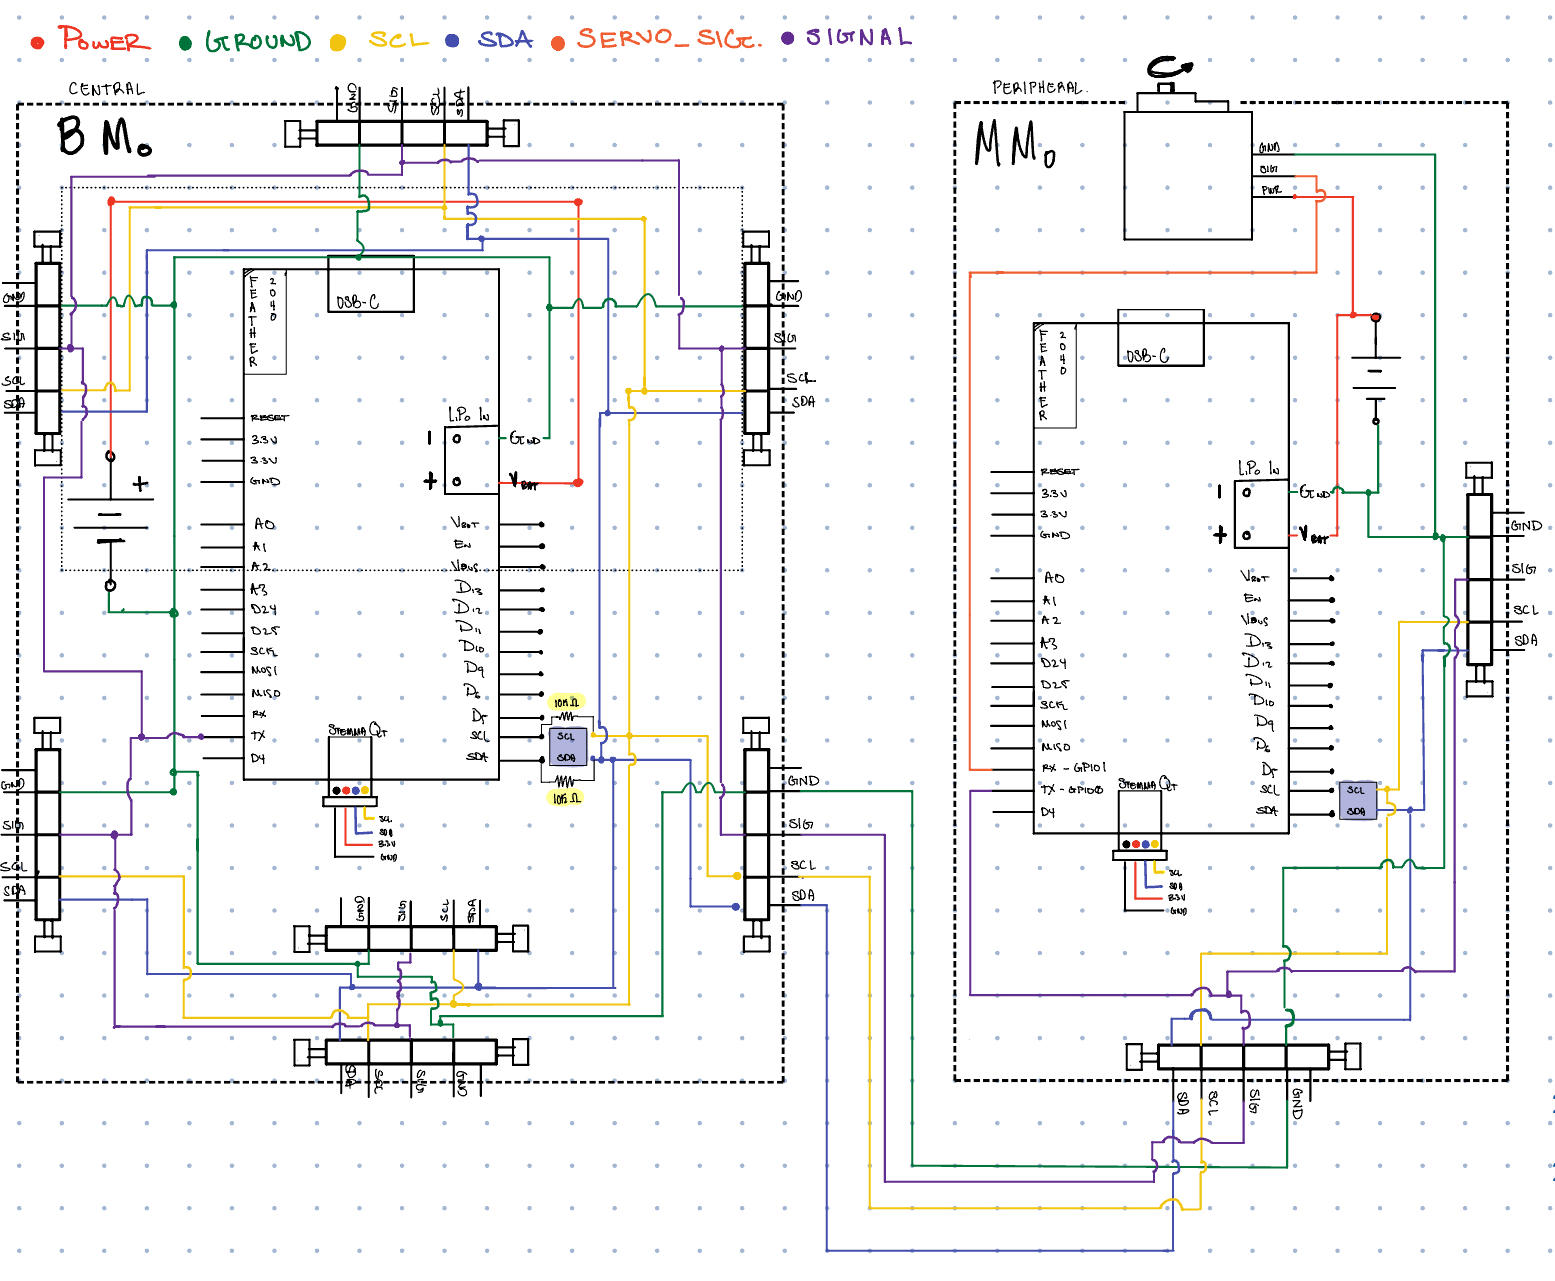 POWER GROUND SCL SDA SERVO_SIG. SIGNAL
CENTRAL
BMo
GND SIG SCL SDA
GND
SIG
SCL
SDA
GND
SIG
SCL
SDA
FEATHER
2040
USB-C
LiPo In
- GND
+ VBAT
RESET
3.3V
3.3V
GND
A0
A1
A2
A3
D24
D25
SCK
MOSI
MISO
RX
TX
D4
VBAT
EN
VBUS
D13
D12
D11
D10
D9
D6
D5
SCL
SDA
+
10K Ω
SCL
SDA
10K Ω
STEMMA QT
SCL
SDA
3.3V
GND
GND
SIG
SCL
SDA
GND
SIG
SCL
SDA
GND SIG SCL SDA
SDA SCL SIG GND
PERIPHERAL.
MMo
GND
SIG
PWR
FEATHER
2040
USB-C
LiPo In
- GND
+ VBAT
RESET
3.3V
3.3V
GND
A0
A1
A2
A3
D24
D25
SCK
MOSI
MISO
RX - GPIO1
TX - GPIO0
D4
VBAT
EN
VBUS
D13
D12
D11
D10
D9
D6
D5
SCL
SDA
SCL
SDA
STEMMA QT
SCL
SDA
3.3V
GND
GND
SIG
SCL
SDA
SDA SCL SIG GND